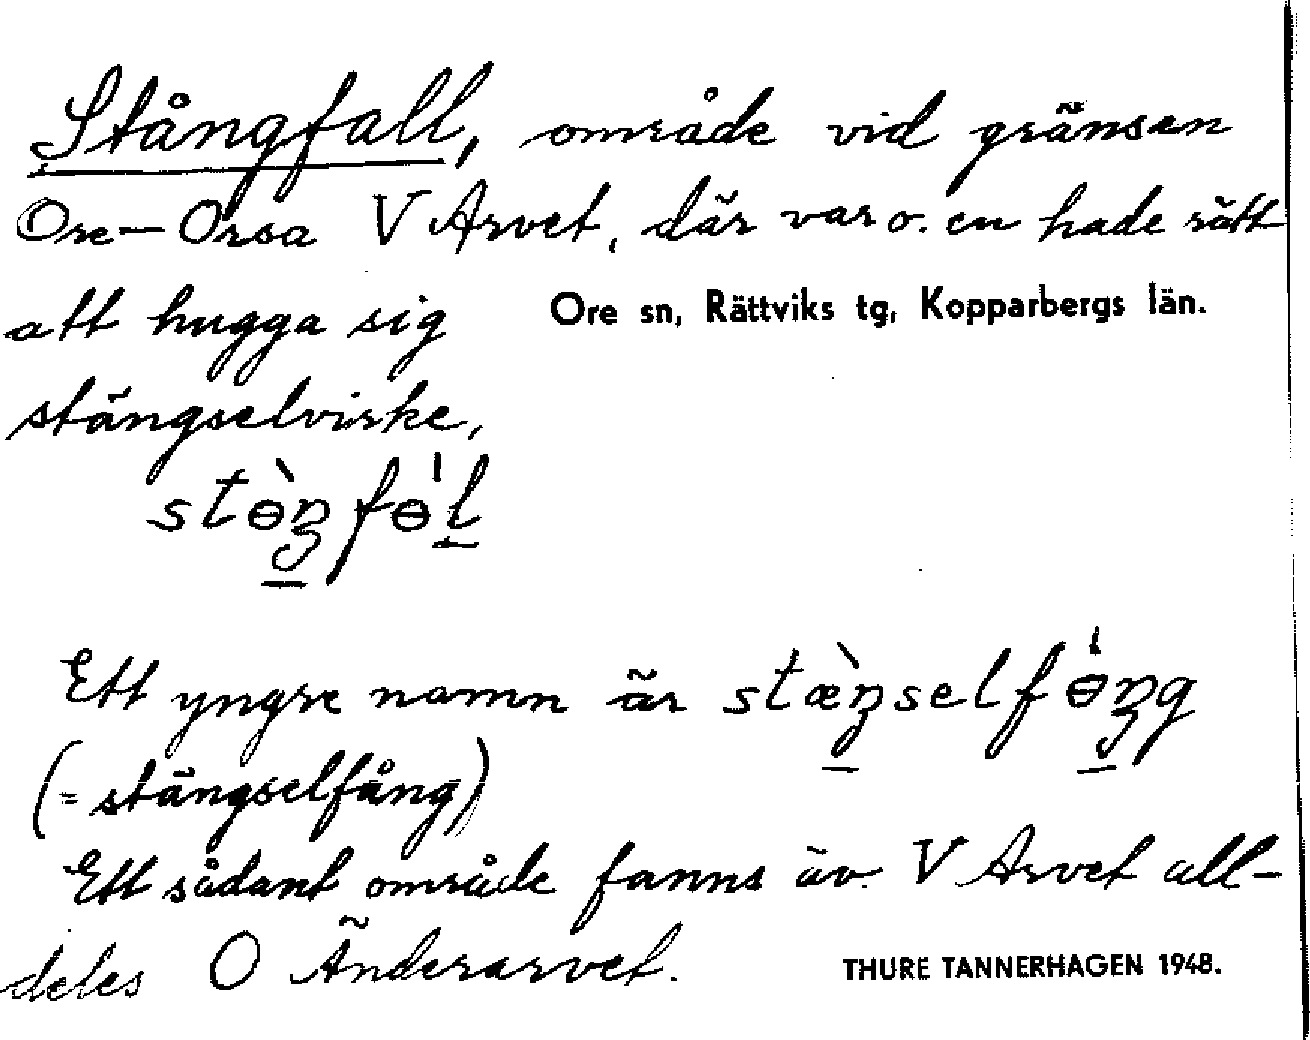 Stångfall, område vid gränsen
Ore–Orsa V Arvet, där var o. en hade rätt
att hugga sig
Ore sn, Rättviks tg, Kopparbergs län.
stängselvirke,
stɵ̀ŋfɵ́l
Ett yngre namn är stæ̀ŋselfɵ́ŋg
(= stängselfång)
Ett sådant område fanns äv. V Arvet all-
deles O Änderarvet.
THURE TANNERHAGEN 1948.